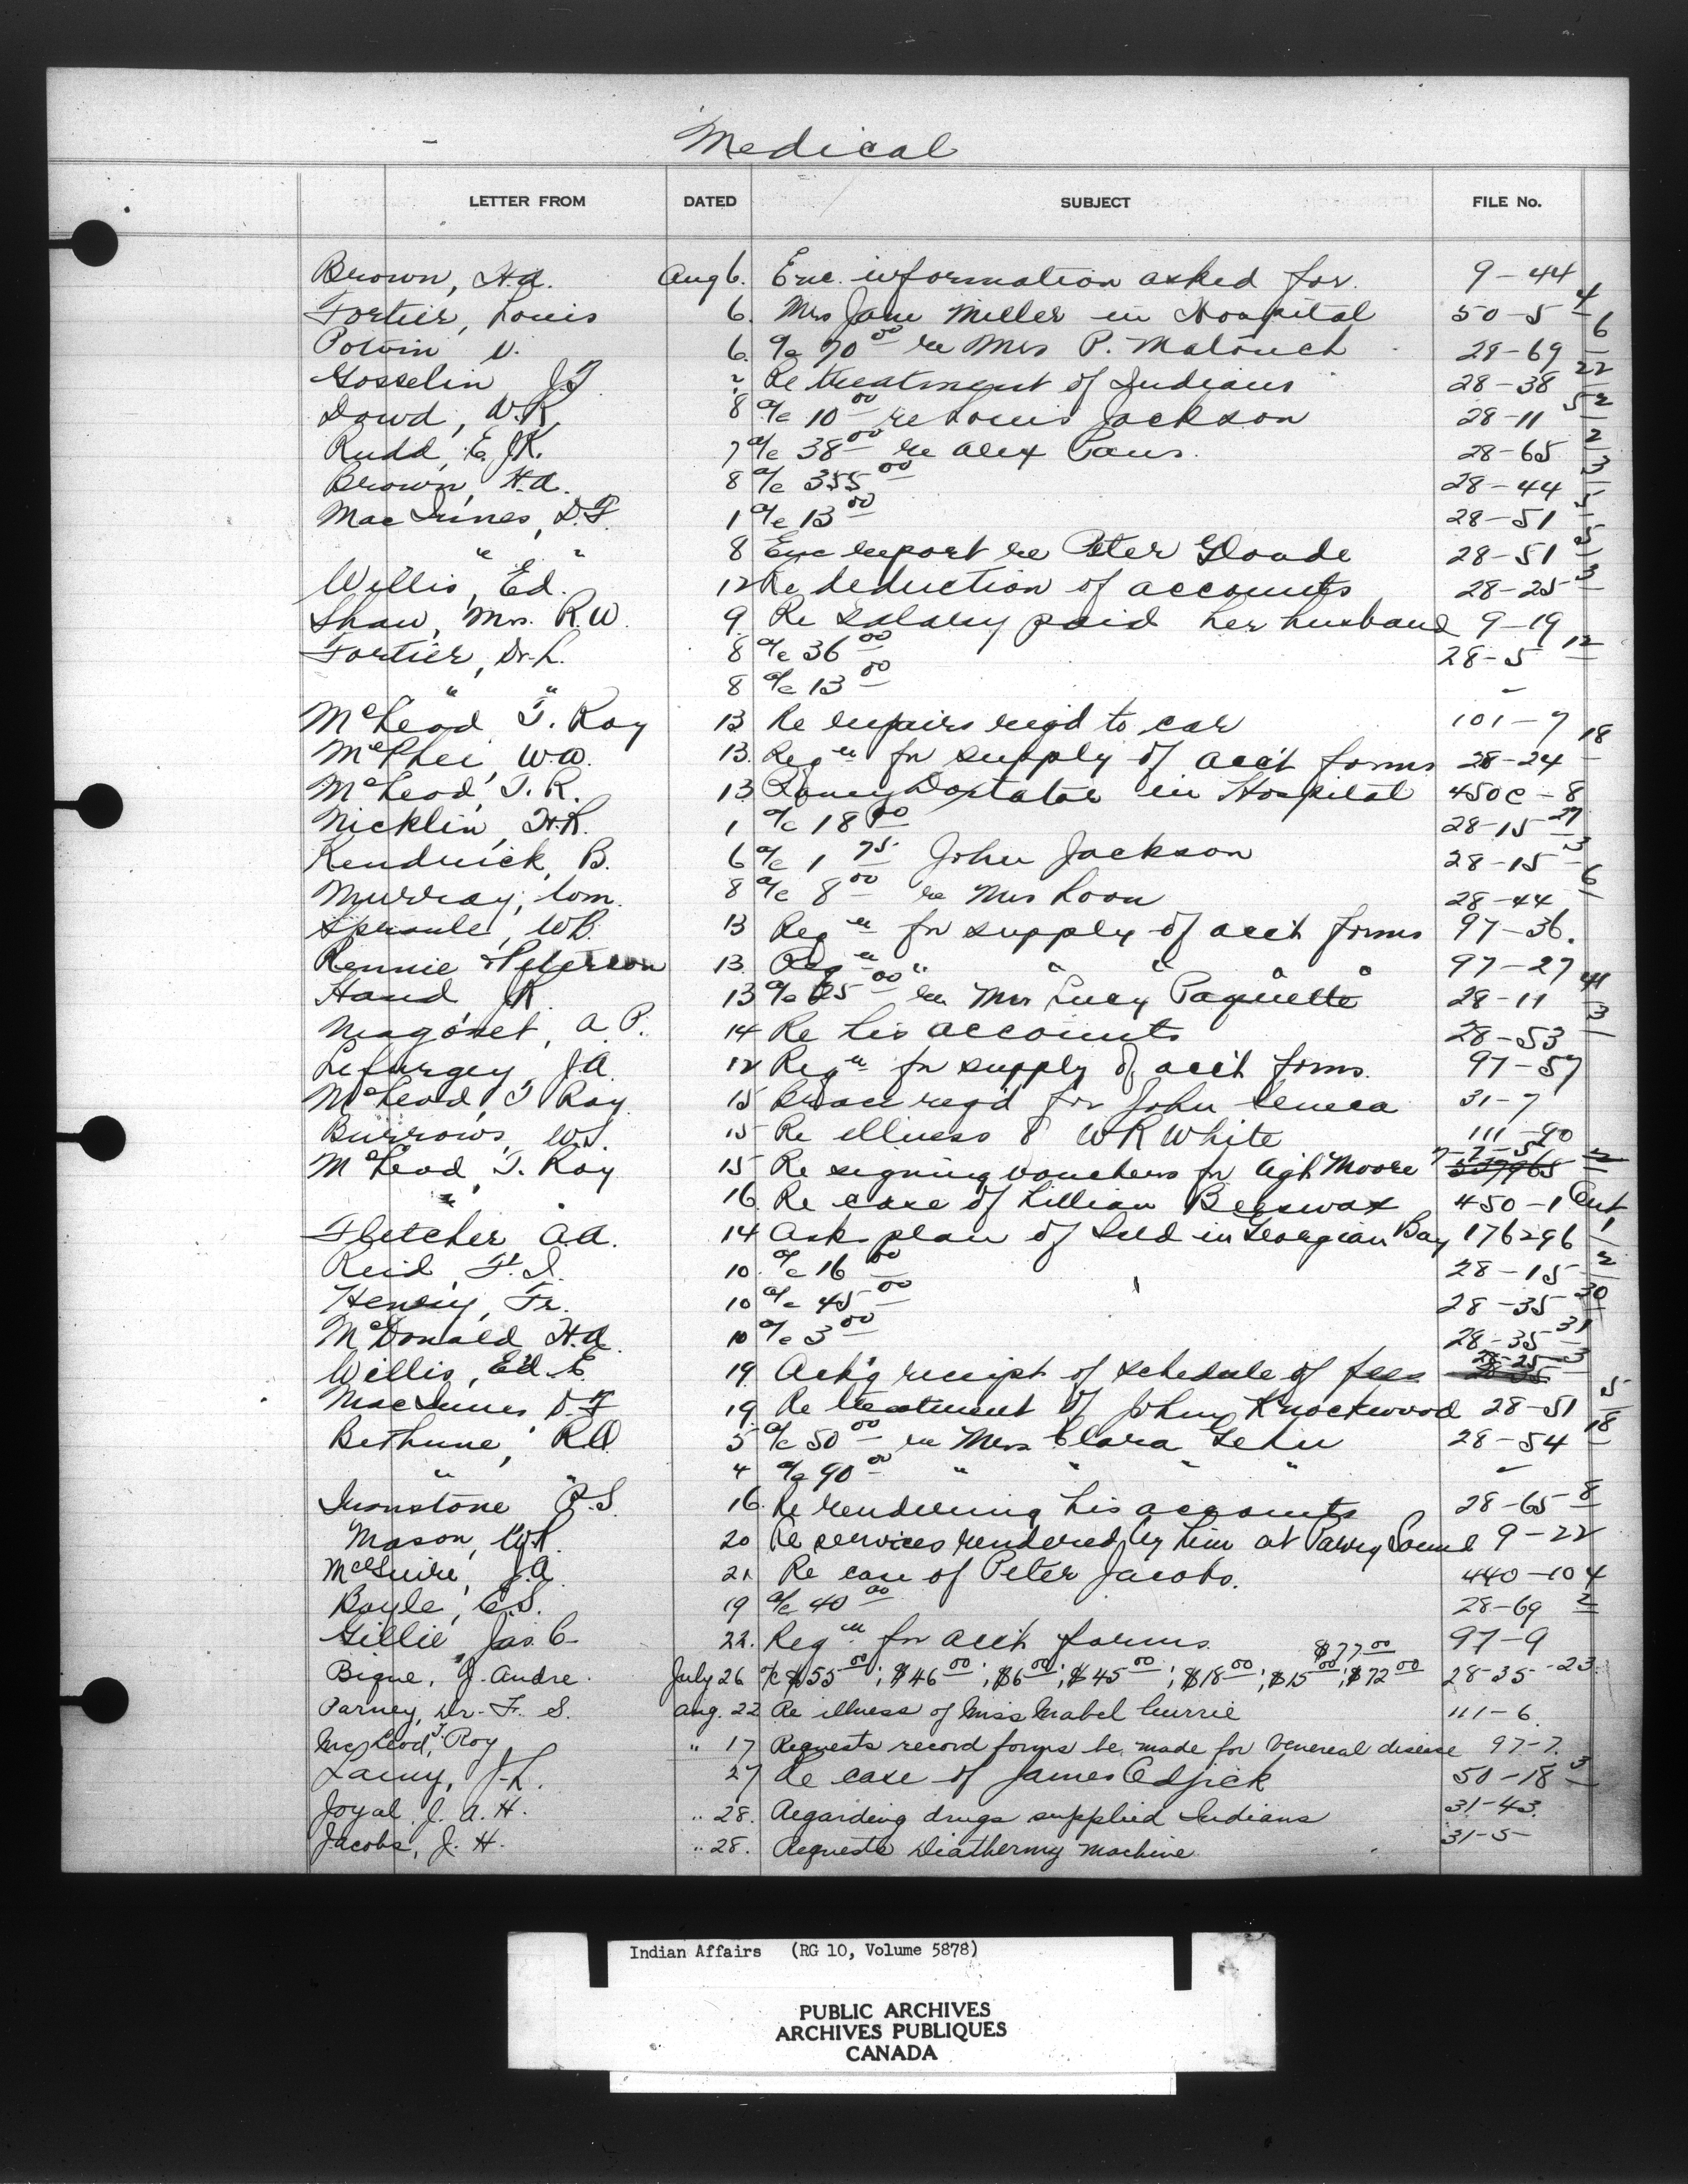 Medical
LETTER FROM DATED SUBJECT FILE No.
Brown, H.A. Aug 6. Enc. information asked for. 9-44
Fortier, Louis 6. Mrs Jane Miller in Hospital 50-5 4
Potvin D. 6. a/c 70 00 re Mrs P. Malouch 28-69 6
Gosselin J.F. Re treatment of Indians 28-38 22
Dowd, W.K. 8 a/c 10 00 re Louis Jackson 28-11 52
Rudd, E.J.K. 7 a/c 38 00 re Alex Paus. 28-65 2
Brown, H.A. 8 a/c 355 00 28-44 3
MacInnes, D.F. 1 a/c 13 00 28-51 5
" " 8 Enc report re Peter Gloade 28-51 5
Willis, Ed. 12 Re deduction of accounts 28-25 3
Shaw, Mrs. R.W. 9. Re salary paid her husband 9-19
Fortier, Dr. L. 8 a/c 36 00 28-5 12
" " 8 a/c 13 00 "
McLeod, T. Roy 13 Re repairs reqd to car 101-7
McPhei, W.A. 13. Reqn for supply of acct forms 28-24 18
McLeod, T.R. 13 in Hospital 450C-8
Nicklin, H.R. 1 a/c 18 00 28-15 27
Kendrick, B. 6 a/c 1 75 John Jackson 28-15 3
Murray, Wm. 8 a/c 8 00 re Mrs Loon 28-44 6
Sproule, WB. 13 Reqn for supply of acct forms 97-36.
Rennie Peterson 13. Reqn " " " " " 97-27
Hand J.R. 13 a/c 25 00 re Mrs Lucy Paquette 28-11 41
Magonet, A.P. 14 Re his accounts 28-53 3
Lefurgey, J.A. 12 Reqn for supply of acct forms. 97-57
McLeod, T Roy 15 Brace reqd for John Seneca 31-7
Burrows, W.S. 15 Re illness of WR White 111-90
McLeod, T. Roy 15 Re signing vouchers for Agt Moore
" " 16 Re case of Lillian Beeswax 450-1 Cent
Fletcher A.A. 14 Asks plan of Isld in Georgian Bay 176296 1
Reid, F.I. 10. a/c 16 00 28-15 2
Henry, Fr. 10 a/c 45 00 28-35 30
McDonald H.A. 10 a/c 3 00 28-35 31
Willis, Ed. E. 19. Ack'g receipt of schedule of fees 28-25 3
MacInnes D.F. 19. Re treatment of John Knockwood 28-51 5
Bethune, R.O. 5 a/c 50 00 re Mrs Clara Gehu 28-54 18
" " 4 a/c 90 00 " " " " "
Ironstone P.S. 16. Re rendering his accounts 28-65 8
Mason, W.R. 20 Re services rendered by him at Parry Sound 9-22
McGuire, J.A. 21 Re case of Peter Jacobs. 440-10 4
Boyle, C.S. 19 a/c 40 00 28-69 2
Gillie, Jas. C. 22. Reqn for acct forms 97-9
$77 00
Bigue, J. Andre. July 26 a/c $55 00; $46 00; $6 00; $45 00; $18 00; $15 00; $72 00 28-35-23.
Parney, Dr. F. S. Aug. 22 Re illness of Miss Mabel Currie 111-6
McLeod, T. Roy " 17 Requests record forms be made for venereal disease 97-7.
Lamy, J.L. 27 Re case of James Odjick 50-18 3
Joyal J. A. H. " 28. Regarding drugs supplied Indians 31-43.
Jacobs, J. H. " 28. Requests Diathermy machine. 31-5
Indian Affairs (RG 10, Volume 5878)
PUBLIC ARCHIVES
ARCHIVES PUBLIQUES
CANADA